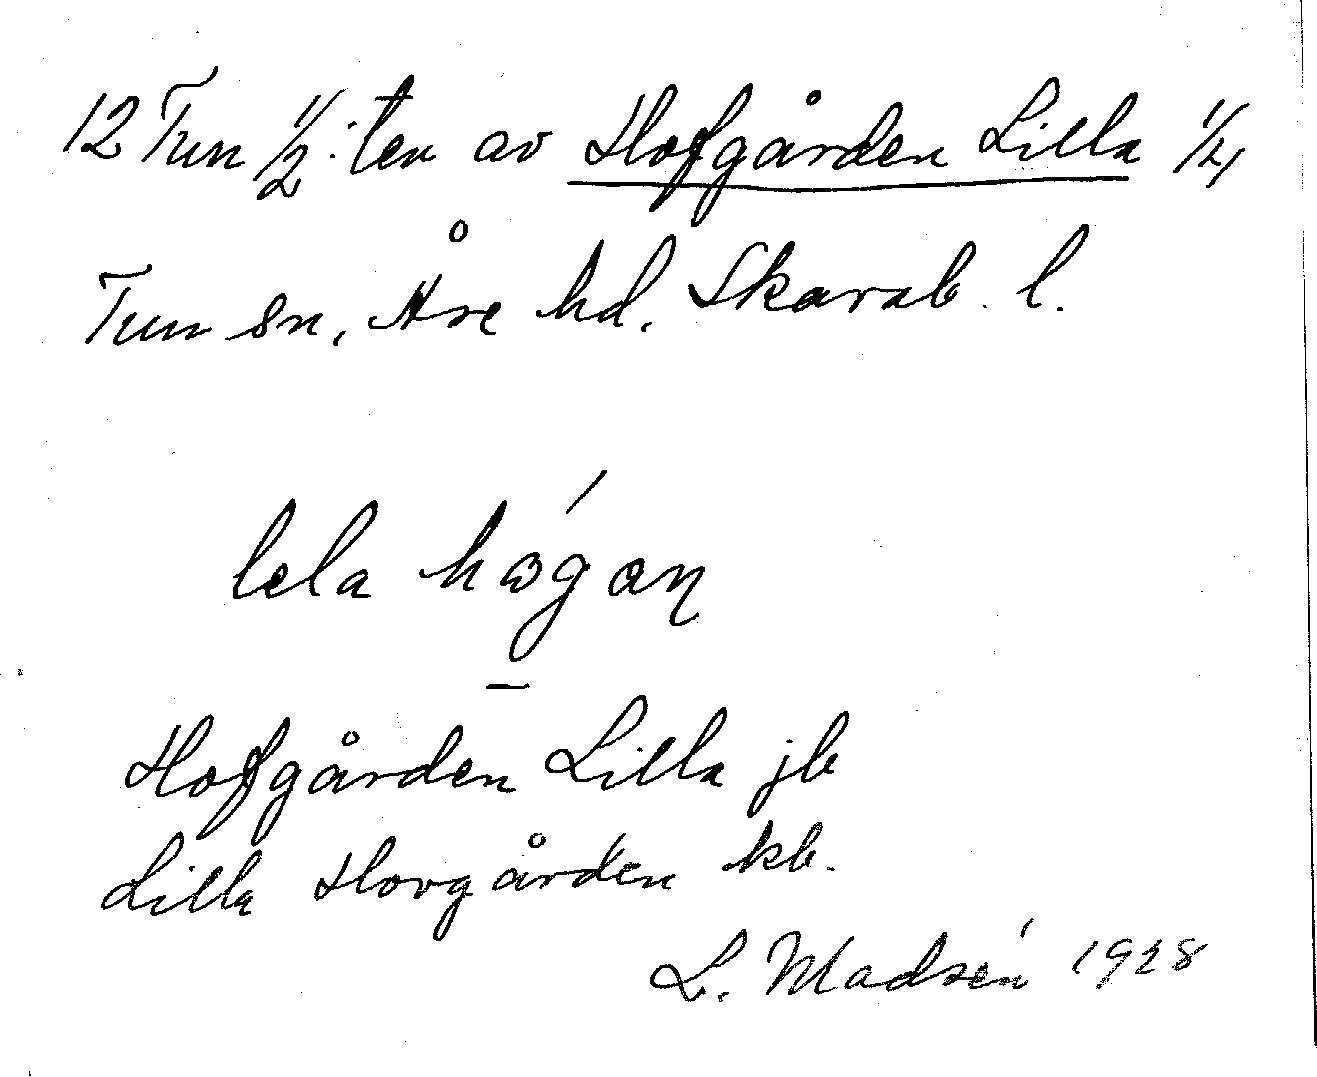 12 Tun 1/2:ten av Hofgården Lilla 1/4
Tun sn, Åse hd, Skarab. l.
lela hógan
Hofgården Lilla jb
Lilla Hovgården kb.
L. Madsén 1928